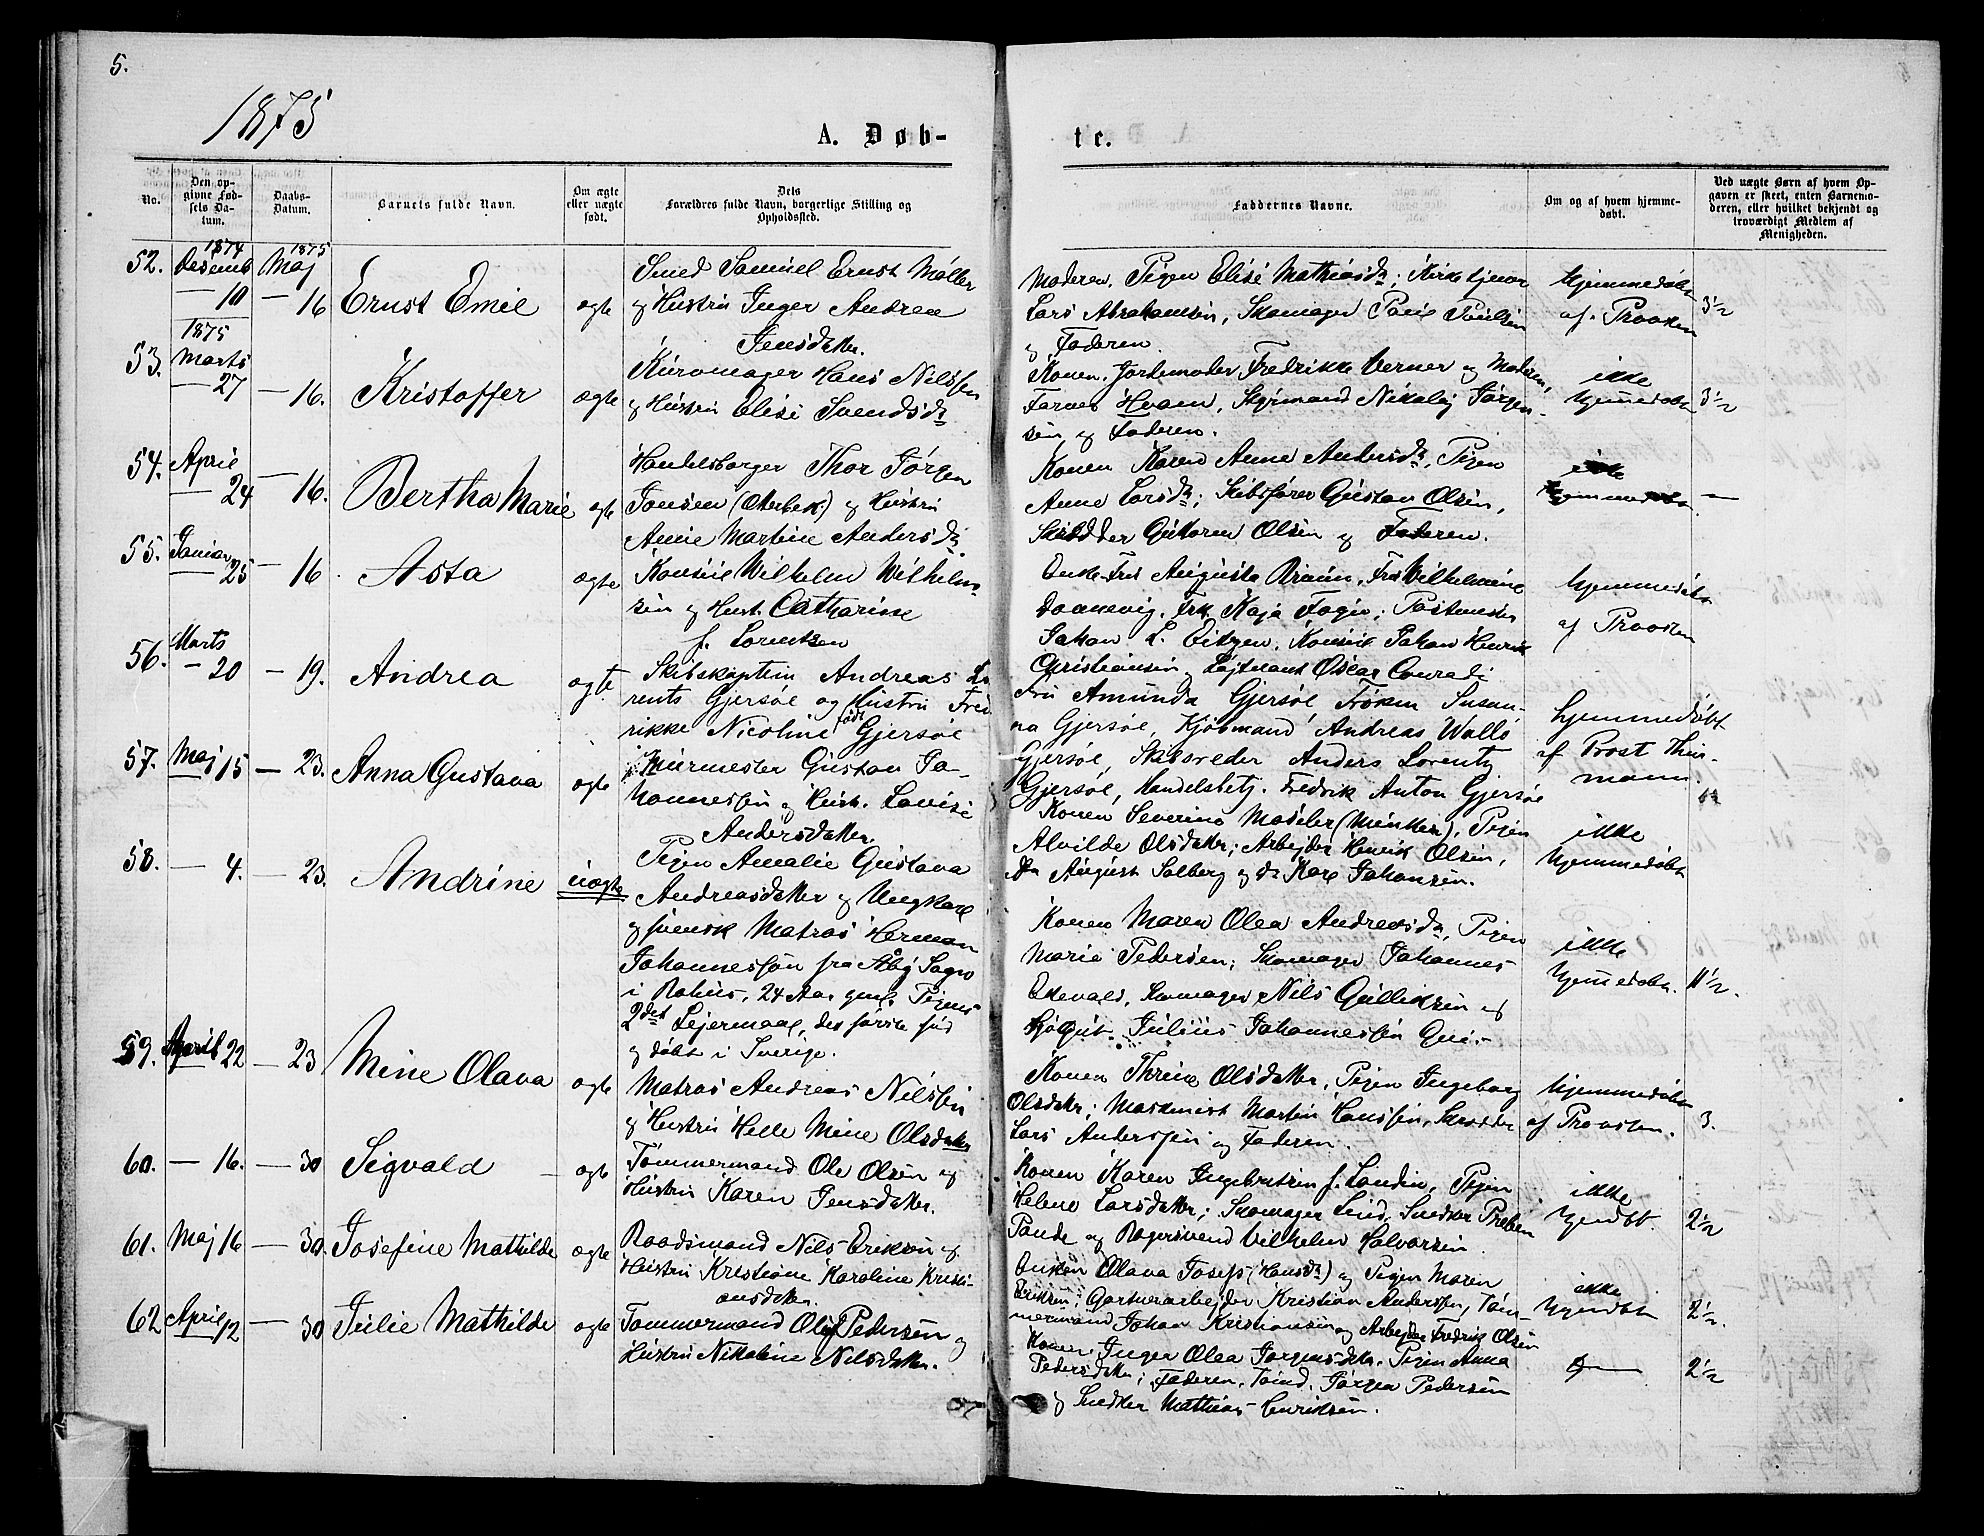 5.
1875
A. Døb-
te.
No.
Den op-
givne Fød-
sels Da-
tum.
Daabs-
Datum.
Barnets fulde Navn.
Om ægte
eller uægte
født.
Dets
Forældres fulde Navn, borgerlige Stilling og
Opholdssted.
Faddernes Navne.
Om og af hvem hjemme-
døbt.
Ved uægte Børn af hvem Op-
gaven er skeet, enten Barnemo-
deren, eller hvilket bekjendt og
troværdigt Medlem af
Menigheden.
52.
1874
Desemb
— 10
1875
Maj
— 16
Ernst Emil
ægte
Smed Samuel Ernst Møller
og Hustru Inger Andrea
Jensdatter.
Moderen, Pigen Elise Mathiasdr; Kirketjener
Lars Abrahamsen, Skomager Poul Poulsen
og Faderen.
Hjemmedøbt
af Provsten
3½
53.
1875
Marts
— 27
— 16.
Kristoffer
ægte
Kurvmager Hans Nilssen
og Hustru Elise Svendsdr
Konen, Jordemoder Fredrikke Verner og Moderen,
Farver Hvam, Nikolaj Jørgen-
sen og Faderen.
ikke
hjemmedøbt
3½
54.
April
— 24
— 16.
Bertha Marie
ægte
Handelsborger Thor Jørgen
Jonsen (Otterbek) og Hustru
Anne Martine Andersdr.
Konen Karen Anne Andersdr, Pigen
Anne Larsdr; Skibsfører Gustav Olsen,
Skrædder Guttorm Olsen og Faderen.
ikke
hjemmedøbt
—
55.
Januar
25
— 16.
Asta
ægte
Konsul Wilhelm Wilhelm-
sen og Hust. Catharine
f. Lorentzen
Enke-Fru Augusta Bruun, Fru Wilhelmine
Dannevig, Frk. Kaja Fogn; Postmester
Johan L. Qitzen, Konsul Johan Henrik
Christiansen og Løjtnant Oscar Conradi
hjemmedøbt
af Provsten
56.
Marts
— 20
— 19.
Andrea
ægte
Skibskaptein Andreas Lo
rents Gjersøe og Hustru Fred
rikke Nicoline født Gjersøe
Fru Amunda Gjersøe, Frøken Susan-
na Gjersøe, Kjøbmand Andreas Wallø
Gjersøe, Skibsreder Anders Lorentz
Gjersøe, Handelsbetj. Fredrik Anton Gjersøe
hjemmedøbt
af Prost Thur-
mann.
57.
Maj
15
— 23.
Anna Gustava
ægte
Murmester Gustav Jo-
hannessen og Hust. Lovise
Andersdatter.
Konen Severine Moseler (Münster), Pigen
Alvilde Olsdatter; Arbejder Henrik Olsen,
Do August Solberg og do Karl Johansen.
ikke
hjemmedøbt
58.
— 4.
— 23.
Andrine
uægte
Pigen Amalie Gustava
Andreasdatter og Ungkarl
og svensk Matros Herman
Johannesson fra Åby Sogn
i Bohus, 24 Aar gml. Pigens
2det Lejermaal, det første fød
og døbt i Sverige.
Konen Maren Olea Andreasdr, Pigen
Marie Pedersen; Skomager Johannes
Odevald, Skomager Nils Gulliksen og
Julius Johannessen
ikke
hjemmedøbt.
11½.
59.
April 22
— 23
Mine Olava
ægte
Matros Andreas Nilssen
og Hustru Helle Mine Olsdatter
Konen Thrine Olsdatter, Pigen Ingeborg
Olsdatter; Maskinist Martin Hanssen, Skrædder
Lars Anderssen og Faderen.
hjemmedøbt
af Provsten.
3.
60.
— 16.
— 30
Sigvald
ægte
Tømmermand Ole Olsen og
Hustru Karen Jensdatter.
Konen Karen Ingebretsen f. Lundin, Pigen
Helene Larsdatter; Skomager Lind, Snedker Preben
Pande og Bagersvend Vilhelm Halvorsen
ikke
hjmdbt.
2½
61.
Maj 16
— 30.
Josefine Mathilde
ægte
Baadsmand Nils Eriksen og
Hustru Kristiane Karoline Kristi-
ansdatter.
Enken Olava Josefs (Hansdr) og Pigen Maren
Eriksen; Gartnerarbejder Kristian Anderssen, Tøm-
mermand Johan Kristiansen og Arbejder Fredrik Olsen
ikke
hjmdbt
2½.
62
April
12
— 30
Julie Mathilde
ægte
Tømmermand Oluf Pedersen og
Hustru Nikoline Nilsdatter.
Konen Inger Olea Jørgensdatter, Pigen Anna
Pedersdatter; Faderen, Tømd. Jørgen Pedersen
og Snedker Mathias Henriksen.
2½